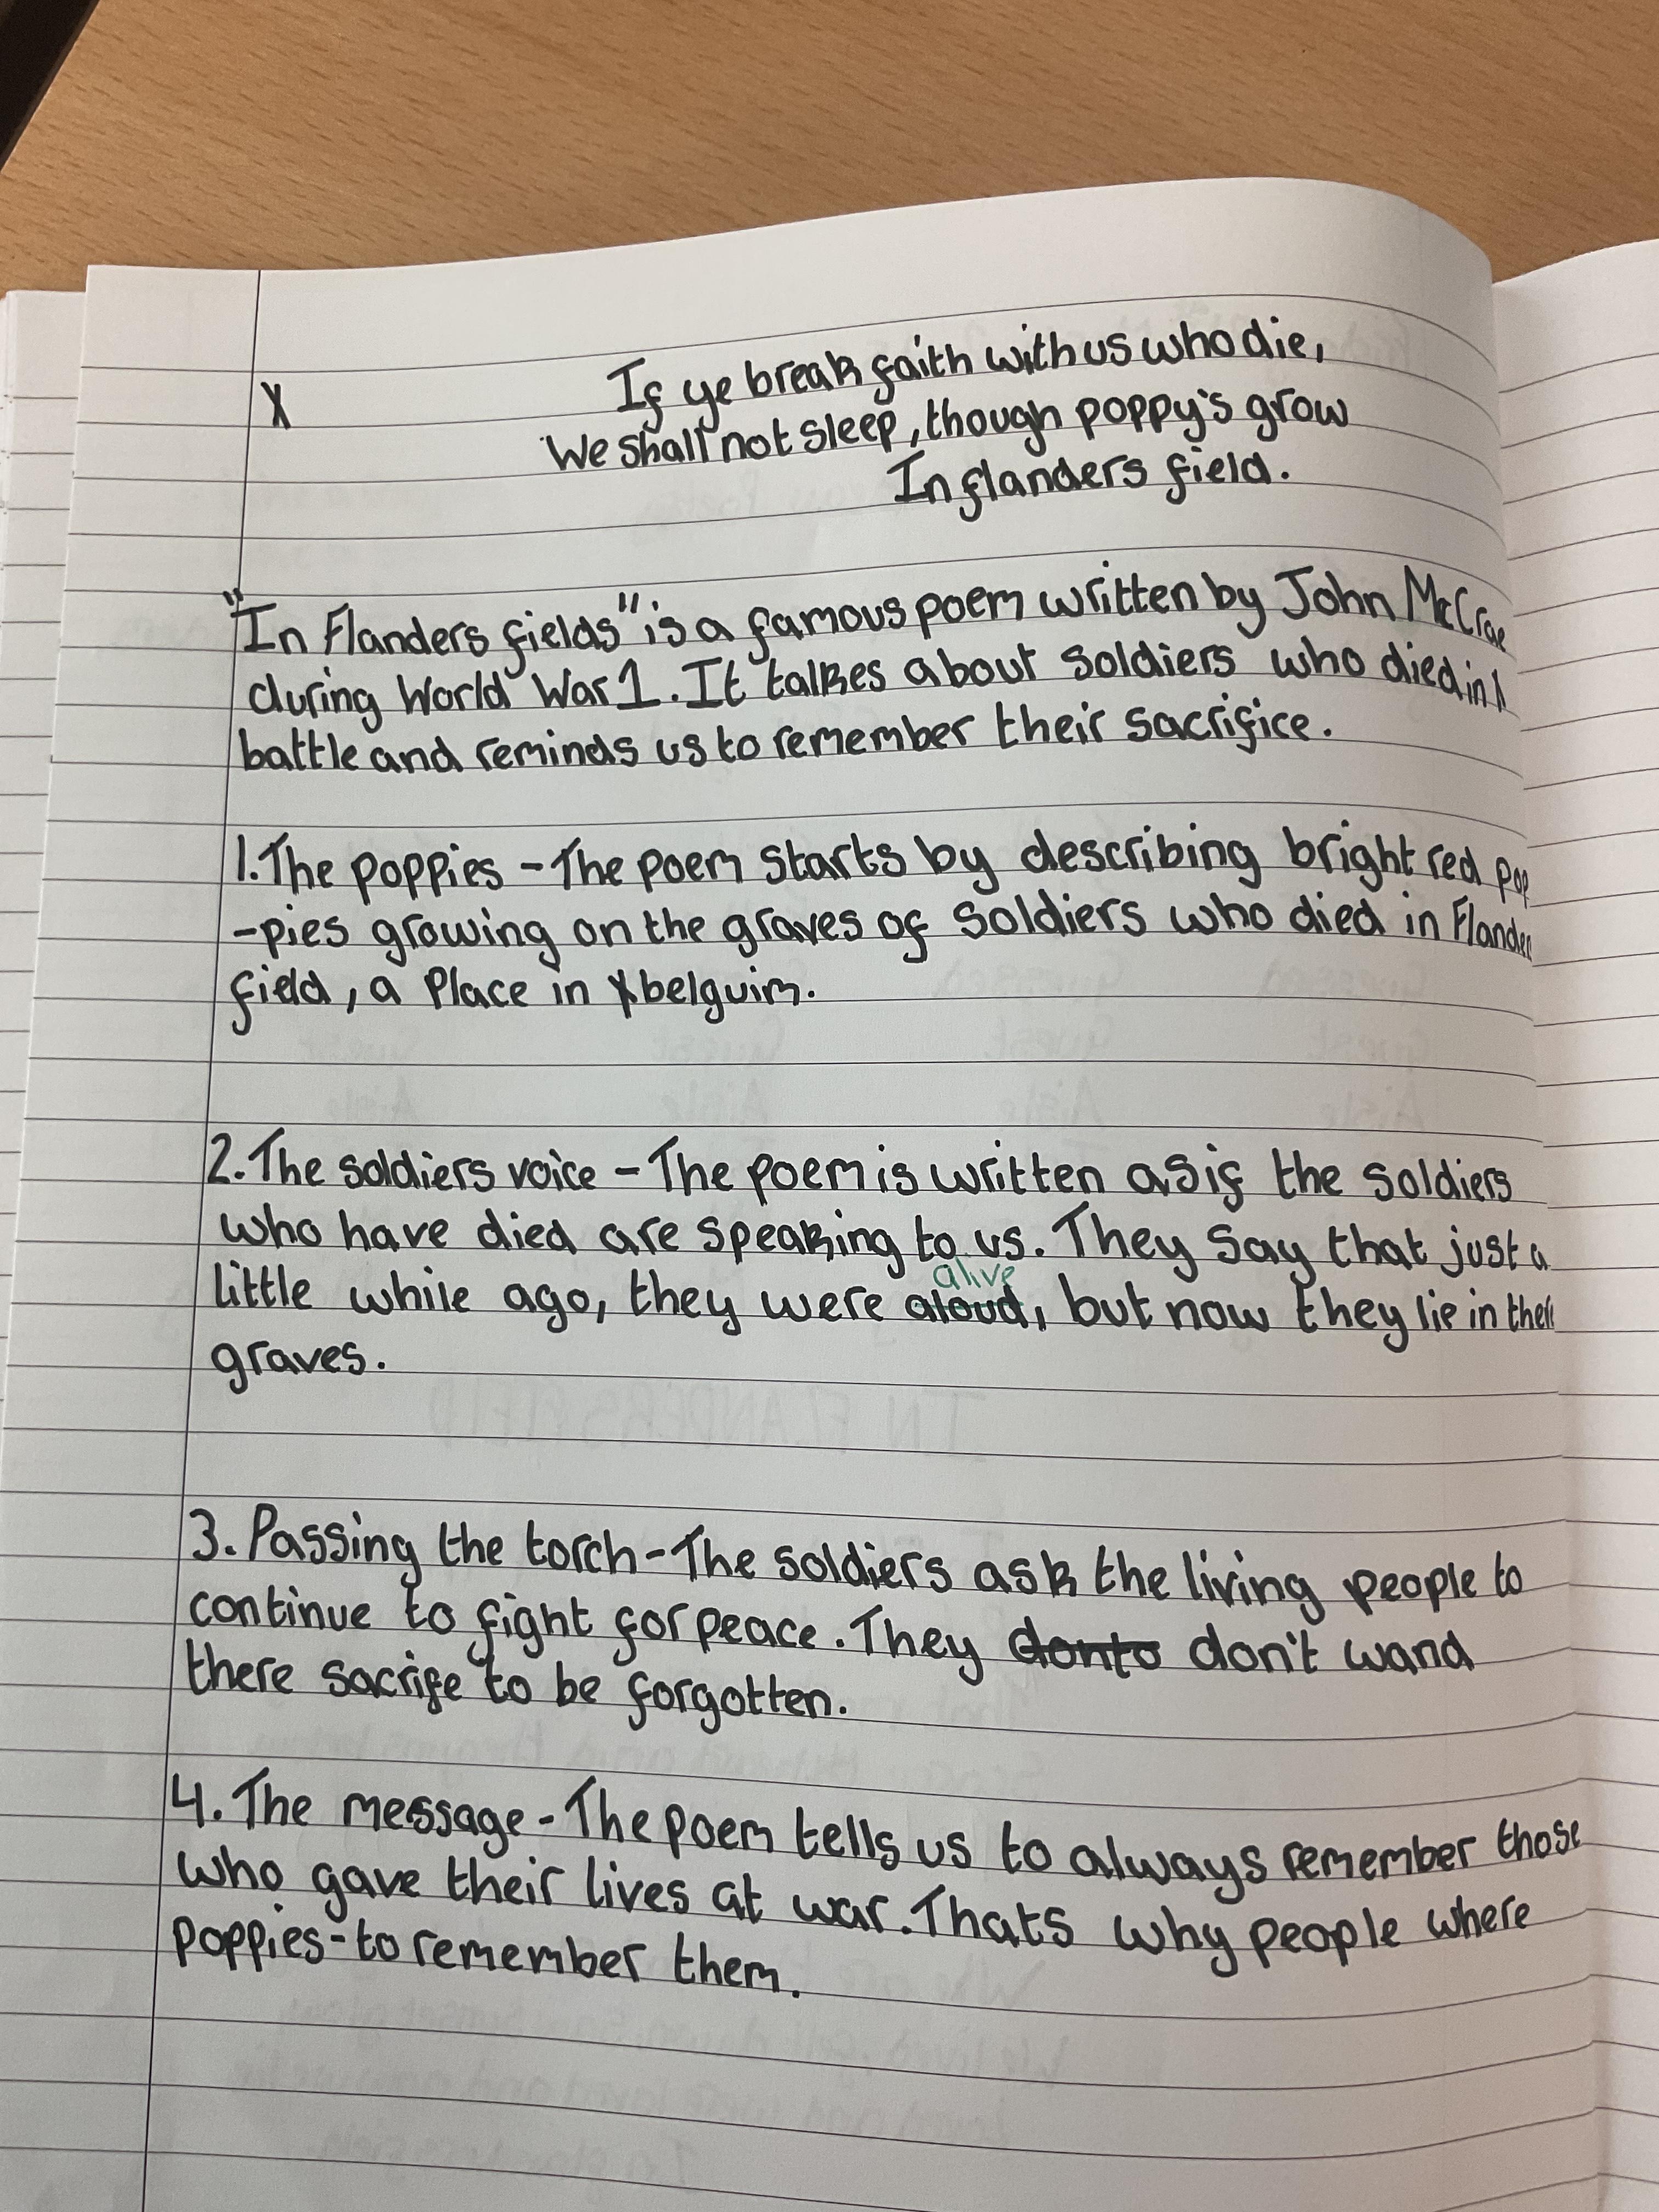 X If ye break faith with us who die,
We shall not sleep, though poppy's grow
In flanders field.
"In Flanders fields" is a famous poem written by John McCrae
during World War 1. It talkes about soldiers who died in
battle and reminds us to remember their sacrifice.
1. The poppies - The poem starts by describing bright red pop
-pies growing on the graves of soldiers who died in Flanders
field, a Place in belguim.
2. The soldiers voice - The poem is written as if the soldiers
who have died are speaking to us. They say that just a
alive
little while ago, they were aloud, but now they lie in their
graves.
3. Passing the torch - The soldiers ask the living people to
continue to fight for peace. They donto don't wand
there sacrife to be forgotten.
4. The message - The poem tells us to always remember those
who gave their lives at war. Thats why people where
poppies - to remember them.